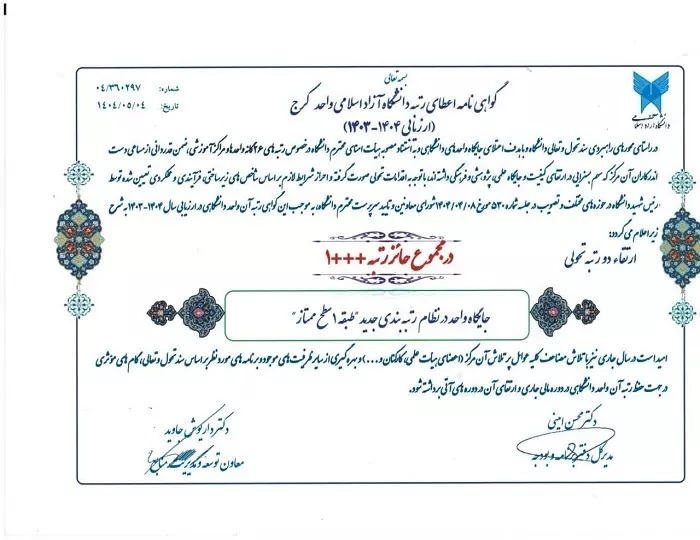 بسمه تعالی
گواهی نامه اعطای رتبه دانشگاه آزاد اسلامی واحد کرج
(ارزیابی ۱۴۰۴-۱۴۰۳)
شماره: ۰۴/۳۶۰۲۹۷
تاریخ: ۱۴۰۴/۰۵/۰۴
دانشگاه آزاد اسلامی
در راستای محورهای راهبردی سند تحول و تعالی دانشگاه و با هدف اعتلای جایگاه واحدهای دانشگاهی و به استناد مصوبه هیات امنای محترم دانشگاه در خصوص رتبه های ۲۶ گانه واحدها و مراکز آموزشی، ضمن قدردانی از مساعی دست
اندرکاران آن مرکز که سهم بسزایی در ارتقای کیفیت و جایگاه علمی، پژوهشی و فرهنگی داشته اند، با توجه به اقدامات تحولی صورت گرفته و احراز شرایط لازم بر اساس شاخص های زیرساختی، فرآیندی و عملکردی تعیین شده توسط
رئیس شهید دانشگاه در حوزه های مختلف و تصویب در جلسه شماره ۵۳۰ مورخ ۱۴۰۴/۰۴/۰۸ شورای معاونین و تایید سرپرست محترم دانشگاه، به موجب این گواهی رتبه آن واحد دانشگاهی در ارزیابی سال ۱۴۰۴-۱۴۰۳ به شرح
زیر اعلام می گردد:
ارتقاء دو رتبه تحولی
در مجموع حائز رتبه +++۱
جایگاه واحد در نظام رتبه بندی جدید "طبقه ۱ سطح ممتاز"
امید است در سال جاری نیز با تلاش مضاعف کلیه عوامل پر تلاش آن مرکز (اعضای هیات علمی، کارکنان و ...) و بهره گیری از سایر ظرفیت های موجود و برنامه های مورد نظر بر اساس سند تحول و تعالی، گام های موثری
در جهت حفظ رتبه آن واحد دانشگاهی در دوره مالی جاری و ارتقای آن در دوره های آتی برداشته شود.
دکتر محسن امینی
مدیرکل دفتر برنامه و بودجه
دکتر داریوش جاوید
معاون توسعه و مدیریت منابع